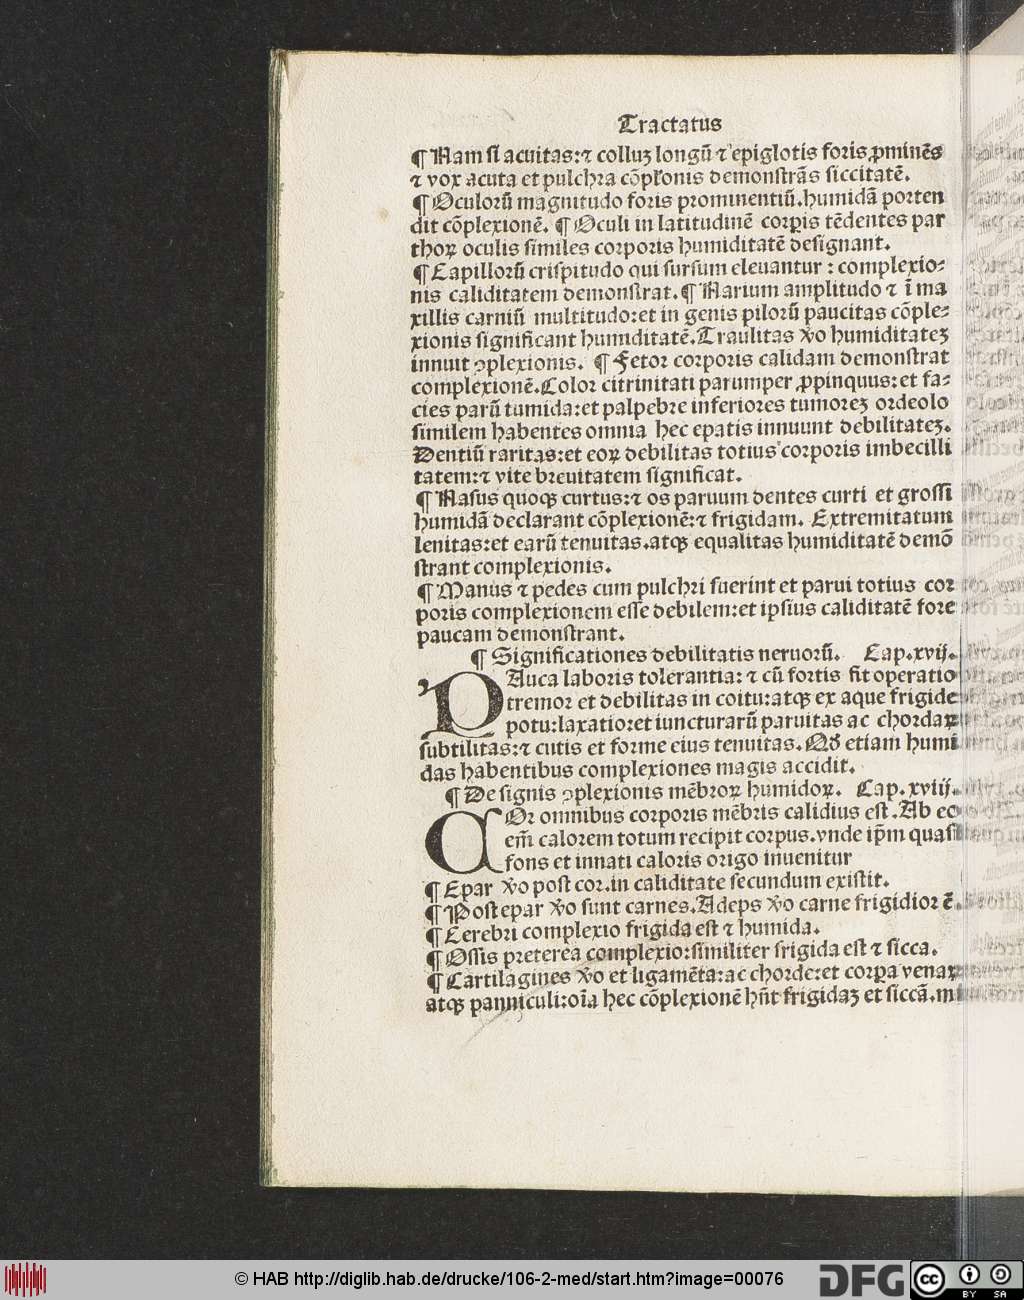 Tractatus
¶ Nam si acuitas: ⁊ colluꝫ longū ⁊ epiglotis foris ꝓminēs
⁊ vox acuta et pulchra cōplōnis demonstrās siccitatē.
¶ Oculorū magnitudo foris prominentiū. humidā porten
dit cōplexionē. ¶ Oculi in latitudinē corꝑis tēdentes par
thoꝝ oculis similes corporis humiditatē designant.
¶ Capillorū crispitudo qui sursum eleuantur: complexio⸗
nis caliditatem demonstrat. ¶ Narium amplitudo ⁊ ī ma
xillis carniū multitudo: et in genis pilorū paucitas cōple⸗
xionis significant humiditatē. Traulitas v̄o humiditateꝫ
innuit ꝯplexionis. ¶ Fetor corporis calidam demonstrat
complexionē. Color citrinitati parumper ꝓpinquus: et fa⸗
cies parū tumida: et palpebre inferiores tumoreꝫ ordeolo
similem habentes omnia hec epatis innuunt debilitateꝫ.
Dentiū raritas: et eoꝝ debilitas totius corporis imbecilli
tatem: ⁊ vite breuitatem significat.
¶ Nasus quoqꝫ curtus: ⁊ os paruum dentes curti et grossi
humidā declarant cōplexionē: ⁊ frigidam. Extremitatum
lenitas: et earū tenuitas. atqꝫ equalitas humiditatē demō
strant complexionis.
¶ Manus ⁊ pedes cum pulchri fuerint et parui totius cor
poris complexionem esse debilem: et ipsius caliditatē fore
paucam demonstrant.
¶ Significationes debilitatis neruorū. Cap. xvij.
PAuca laboris tolerantia: ⁊ cū fortis fit operatio
tremor et debilitas in coitu: atqꝫ ex aque frigide
potu: laxatio: et iuncturarū paruitas ac chordaꝝ
subtilitas: ⁊ cutis et forme eius tenuitas. Qđ etiam humi
das habentibus complexiones magis accidit.
¶ De signis ꝯplexionis mēbroꝝ humidoꝝ. Cap. xviij.
COr omnibus corporis mēbris calidius est. Ab eo
em̄ calorem totum recipit corpus. vnde ip̄m quasi
fons et innati caloris origo inuenitur
¶ Epar v̄o post cor. in caliditate secundum existit.
¶ Post epar v̄o sunt carnes. Adeps v̄o carne frigidior ē.
¶ Cerebri complexio frigida est ⁊ humida.
¶ Ossis preterea complexio: similiter frigida est ⁊ sicca.
¶ Cartilagines v̄o et ligamēta: ac chorde: et corꝑa venaꝝ
atqꝫ panniculi: oīa hec cōplexionē hn̄t frigidaꝫ et siccā. mi
© HAB http://diglib.hab.de/drucke/106-2-med/start.htm?image=00076
DFG
cc
BY SA